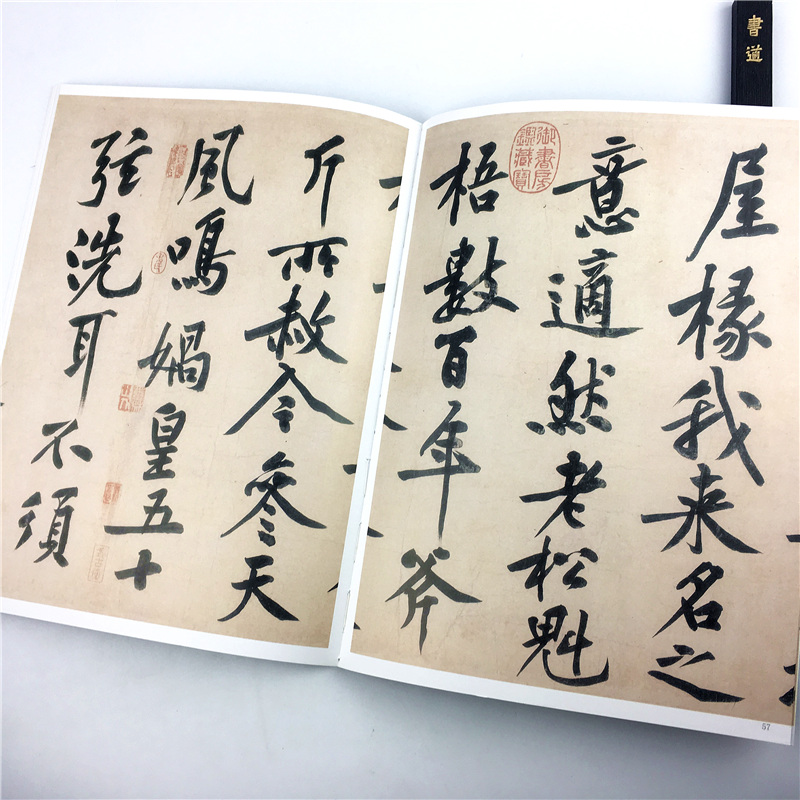 屋椽我来名之
意適然老松魁
梧數百年斧
斤所赦今參天
風鳴媧皇五十
弦洗耳不須
御書房
鑑藏寶
書道
67